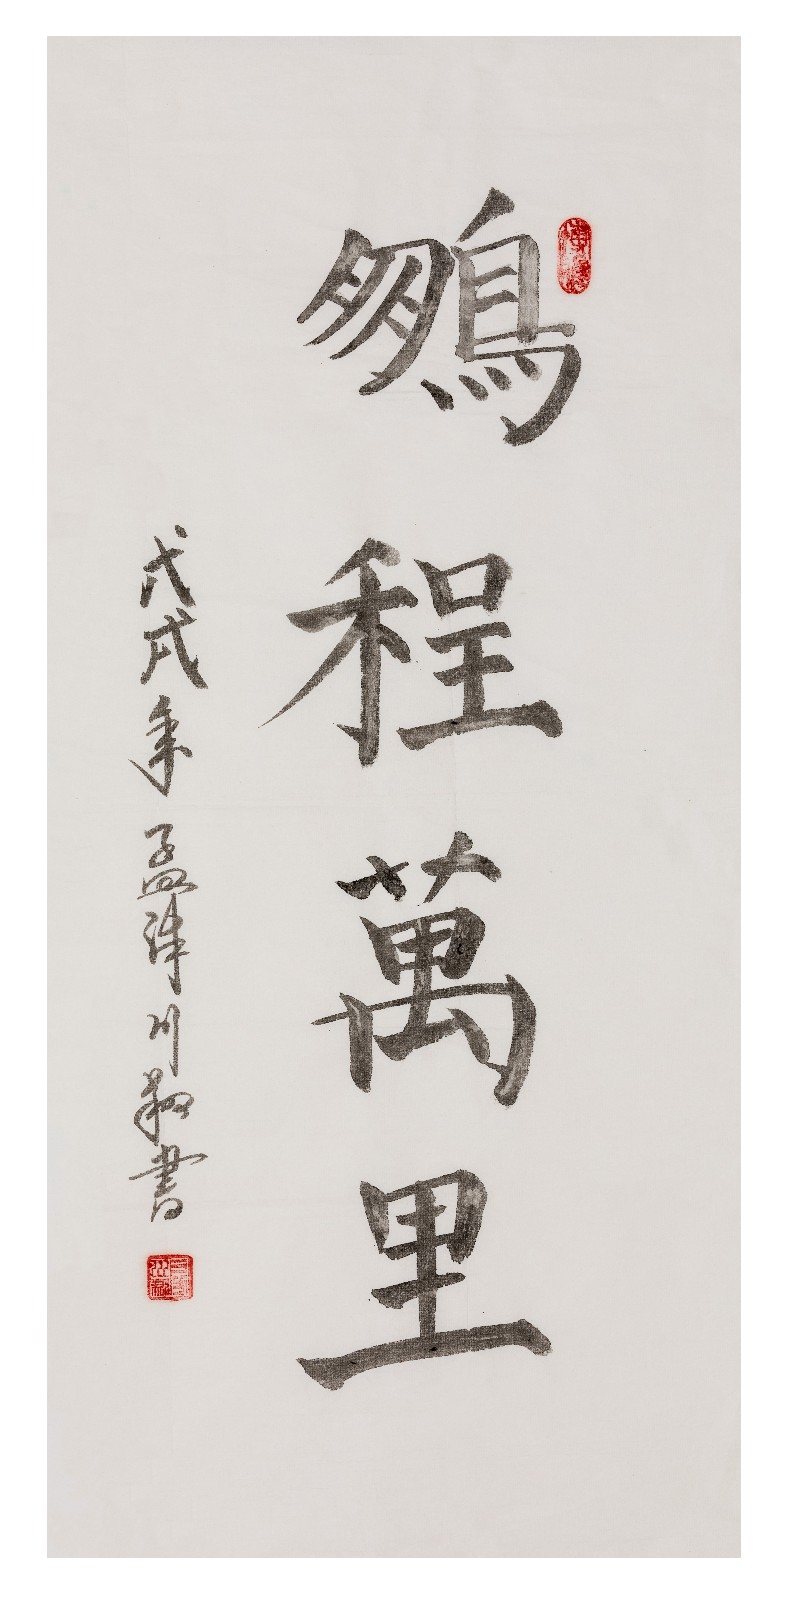 鵬程萬里
戊戌年孟津川書